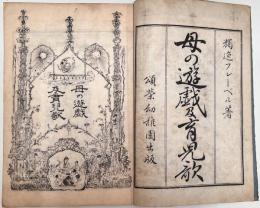 獨逸フレーベル著
母の遊戯及育児歌
頌榮幼稚園出版
母の遊戯
及育児歌